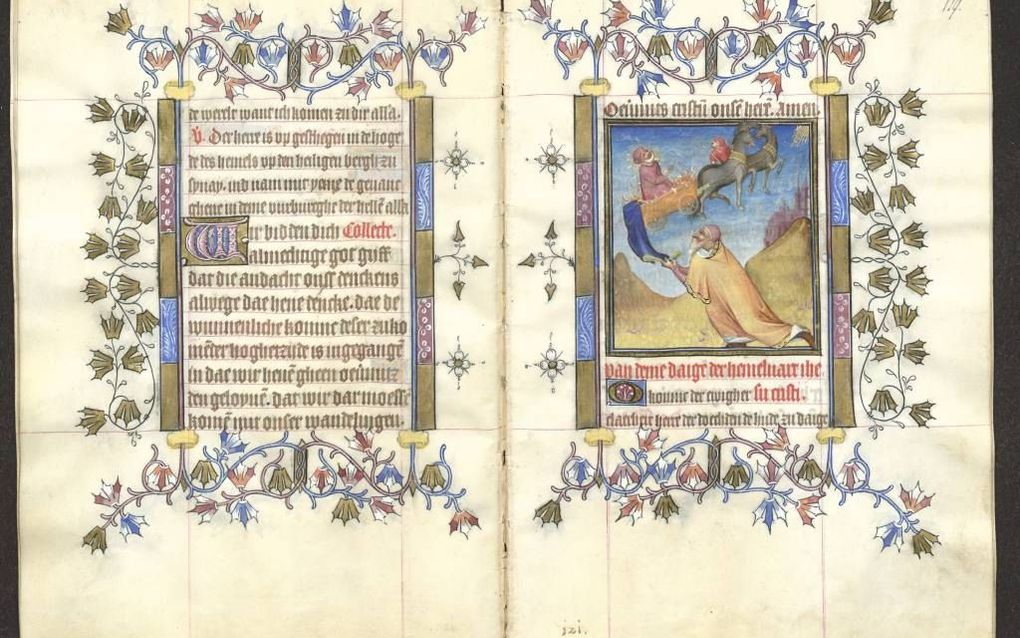 de werelt want ich komen zu dir alla.
V. Der here is up gestiegen in de hoge
de des hemels up den heiligen bergh zu
synay. ind nam mit yme de genanc
ghene in deme vurburghe der hellen alla
Wir bidden dich Collecte.
almechtige got giff
dat die andacht onss denckens
alwege dae hene dencke. dae de
wunnenliche komne deser zuko
hoghezyde is ingegangē
in dat wir henē gheen
den geloyuē. dat wir dar moessē
komē mit onser wandelingen.
cristū onsē herē. Amen.
van deme daige der hemeluart ihe
O komnc der ewigher su cristi.
here der zu daige